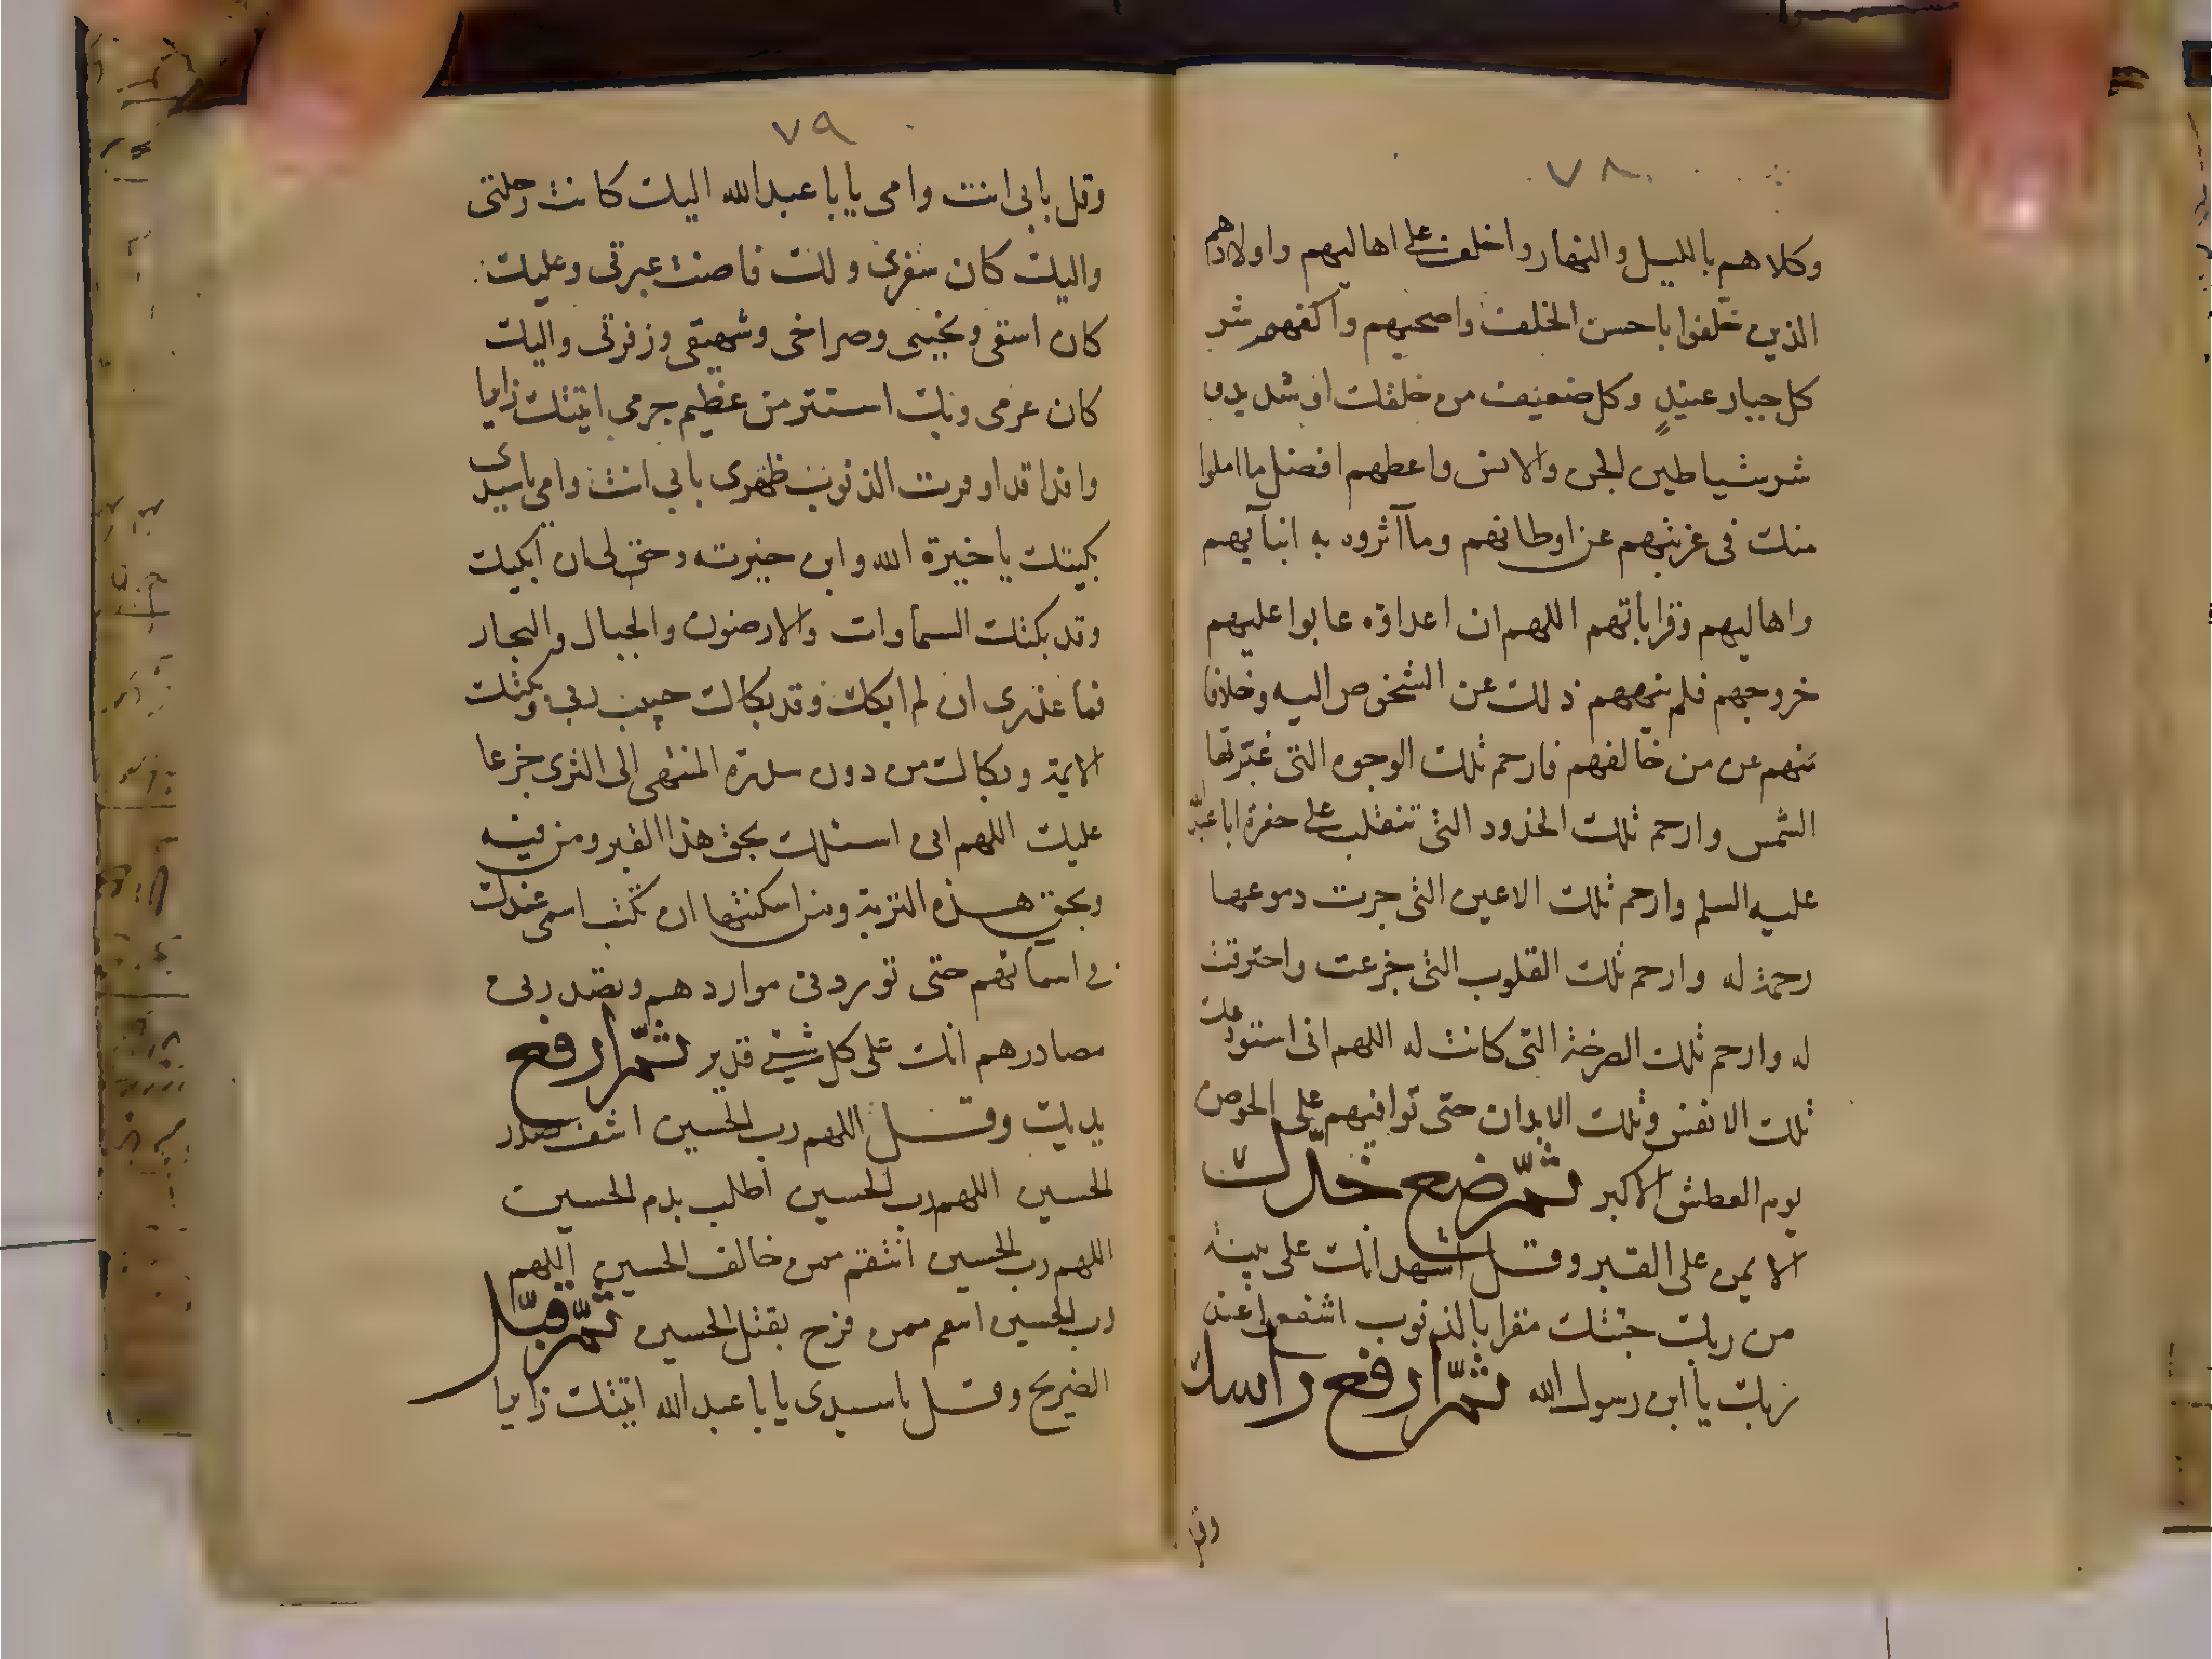 ٧٨
وكلاهم بالليل والنهار واخلف على اهاليهم واولادهم
الذين خلفوا باحسن الخلف واصحبهم واكفهم شر
كل جبار عنيد وكل ضعيف من خلقك او شديد و
شر شياطين الجن والانس واعطهم افضل ما املوا
منك في غربتهم عن اوطانهم وما آثروه به ابنآئهم
واهاليهم وقراباتهم اللهم ان اعداؤه عابوا عليهم
خروجهم فلم ينههم ذلك عن الشخوص اليه وخلافا
منهم عن من خالفهم فارحم تلك الوجوه التى غيرتها
الشمس وارحم تلك الخدود التى تتقلب على حفرة ابا عبد
عليه السلم وارحم تلك الاعين التى جرت دموعها
رحمة له وارحم تلك القلوب التى جزعت واحترقت
له وارحم تلك الصرخة التى كانت له اللهم انى استودعك
تلك الانفس وتلك الابدان حتى توافيهم على الحوض
يوم العطش الاكبر ثم ضع خدك
الايمن على القبر وقل اشهد انك على بينة
من ربك جئتك مقرا بالذنوب اشفع لى عند
ربك يا ابن رسول الله ثم ارفع راسك
وقل
٧٩
وقل بابى انت وامى يا با عبد الله اليك كانت رحلتى
واليك كان سفرى ولك فاضت عبرتى وعليك
كان اسفى ونحيبى وصراخى وشهيقى وزفرتى واليك
كان عزمى وبك استتر من عظيم جرمى اتيتك زايرا
وافدا قد اوقرت الذنوب ظهرى بابي انت وامى يا سيدى
بكيتك يا خيرة الله وابن خيرته وحق لى ان ابكيك
وقد بكتك السماوات والارضون والجبال والبحار
فما عذرى ان لم ابكك وقد بكاك حبيب ربى وبكتك
الايمة وبكاك من دون سدرة المنتهى الى الثرى جزعا
عليك اللهم انى اسئلك بحق هذا القبر ومن فيه
وبحق هذه التربة ومن اسكنتها ان تكتب اسمى عندك
فى اسمائهم حتى توردنى مواردهم وتصدرنى
مصادرهم انك على كل شيئ قدير ثم ارفع
يديك وقل اللهم رب الحسين اشف صدر
الحسين اللهم رب الحسين اطلب بدم الحسين
اللهم رب الحسين انتقم ممن خالف الحسين اللهم
رب الحسين انتقم ممن فرح بقتل الحسين ثم قبل
الضريح وقل يا سيدى يا با عبد الله اتيتك زايرا